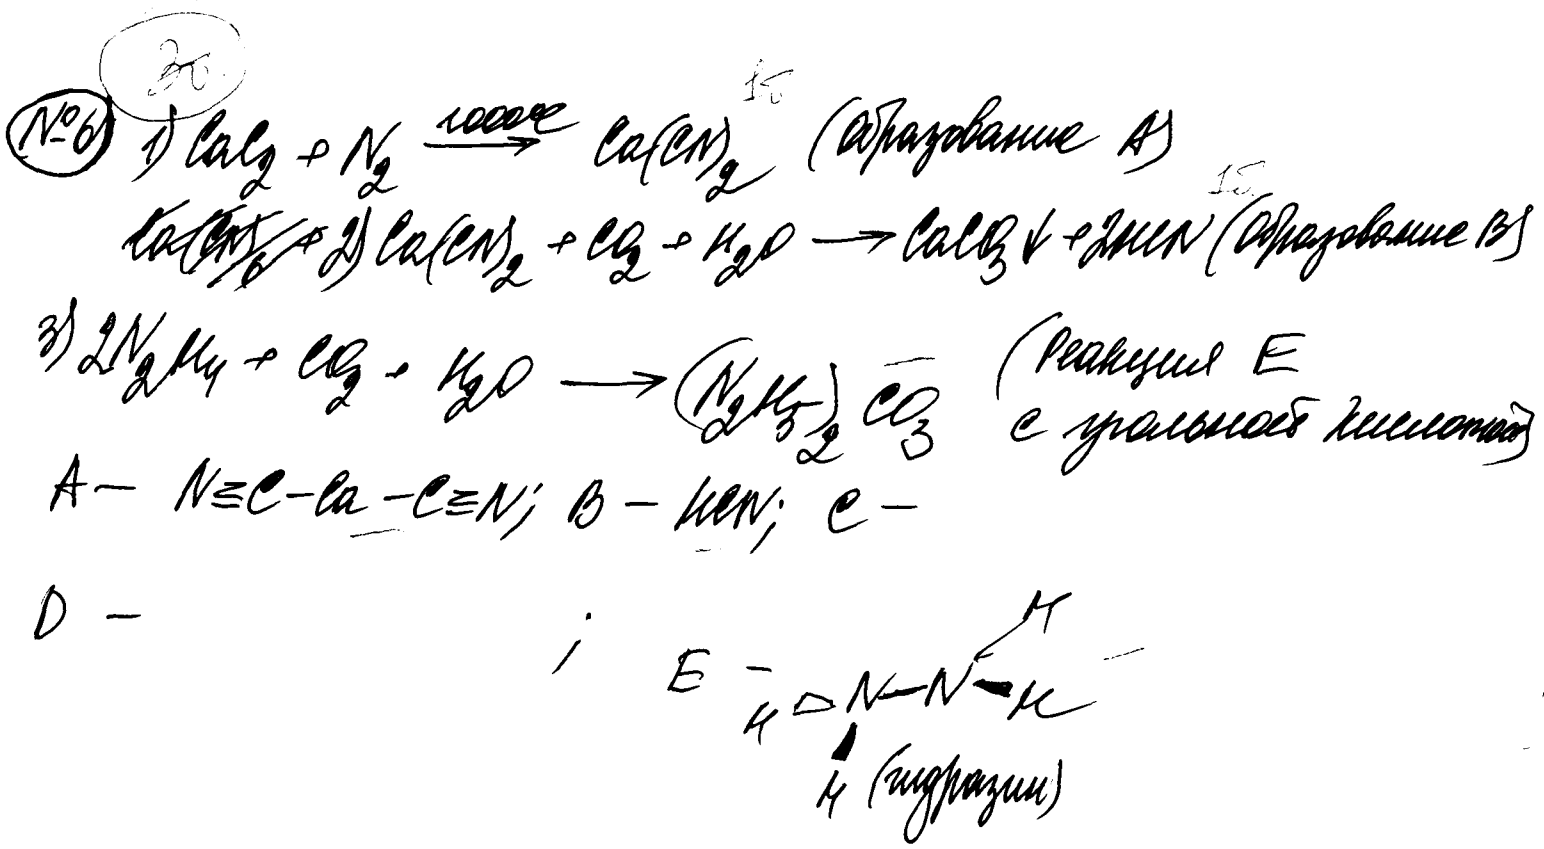 3б.
№6 1) CaC₂ + N₂ →(1000°C) Ca(CN)₂ (Образование А) 1б
2) Ca(CN)₂ + CO₂ + H₂O → CaCO₃↓ + 2HCN (Образование В) 1б.
3) 2N₂H₄ + CO₂ + H₂O → (N₂H₅)₂CO₃ (Реакция Е
с угольной кислотой)
A – N≡C–Ca–C≡N; B – HCN; C –
D – ; E – H N–N H H
H (гидразин)